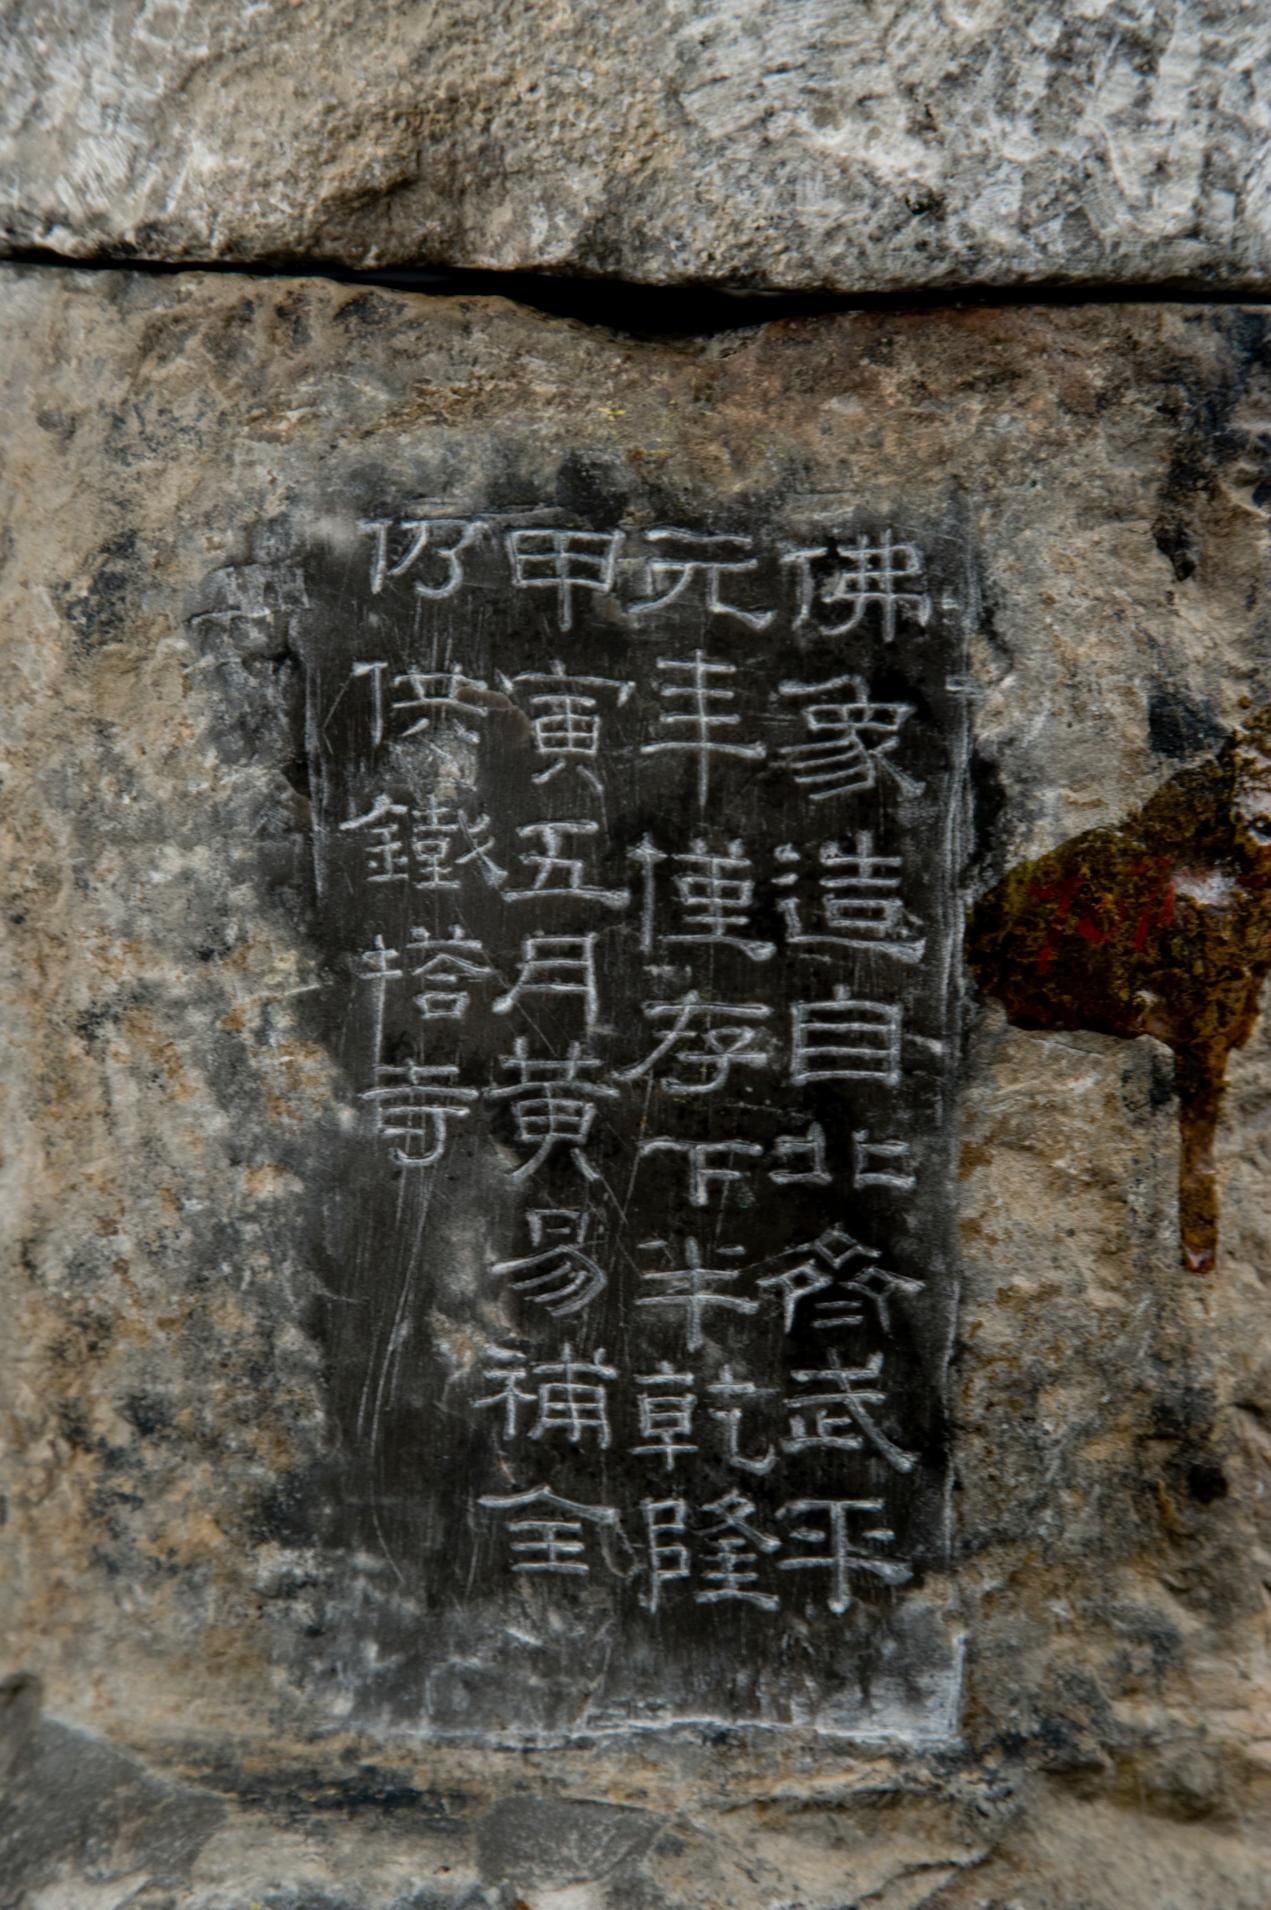 佛象造自北齊武平
元年僅存下半乾隆
甲寅五月黃易補全
仍供鐵塔寺